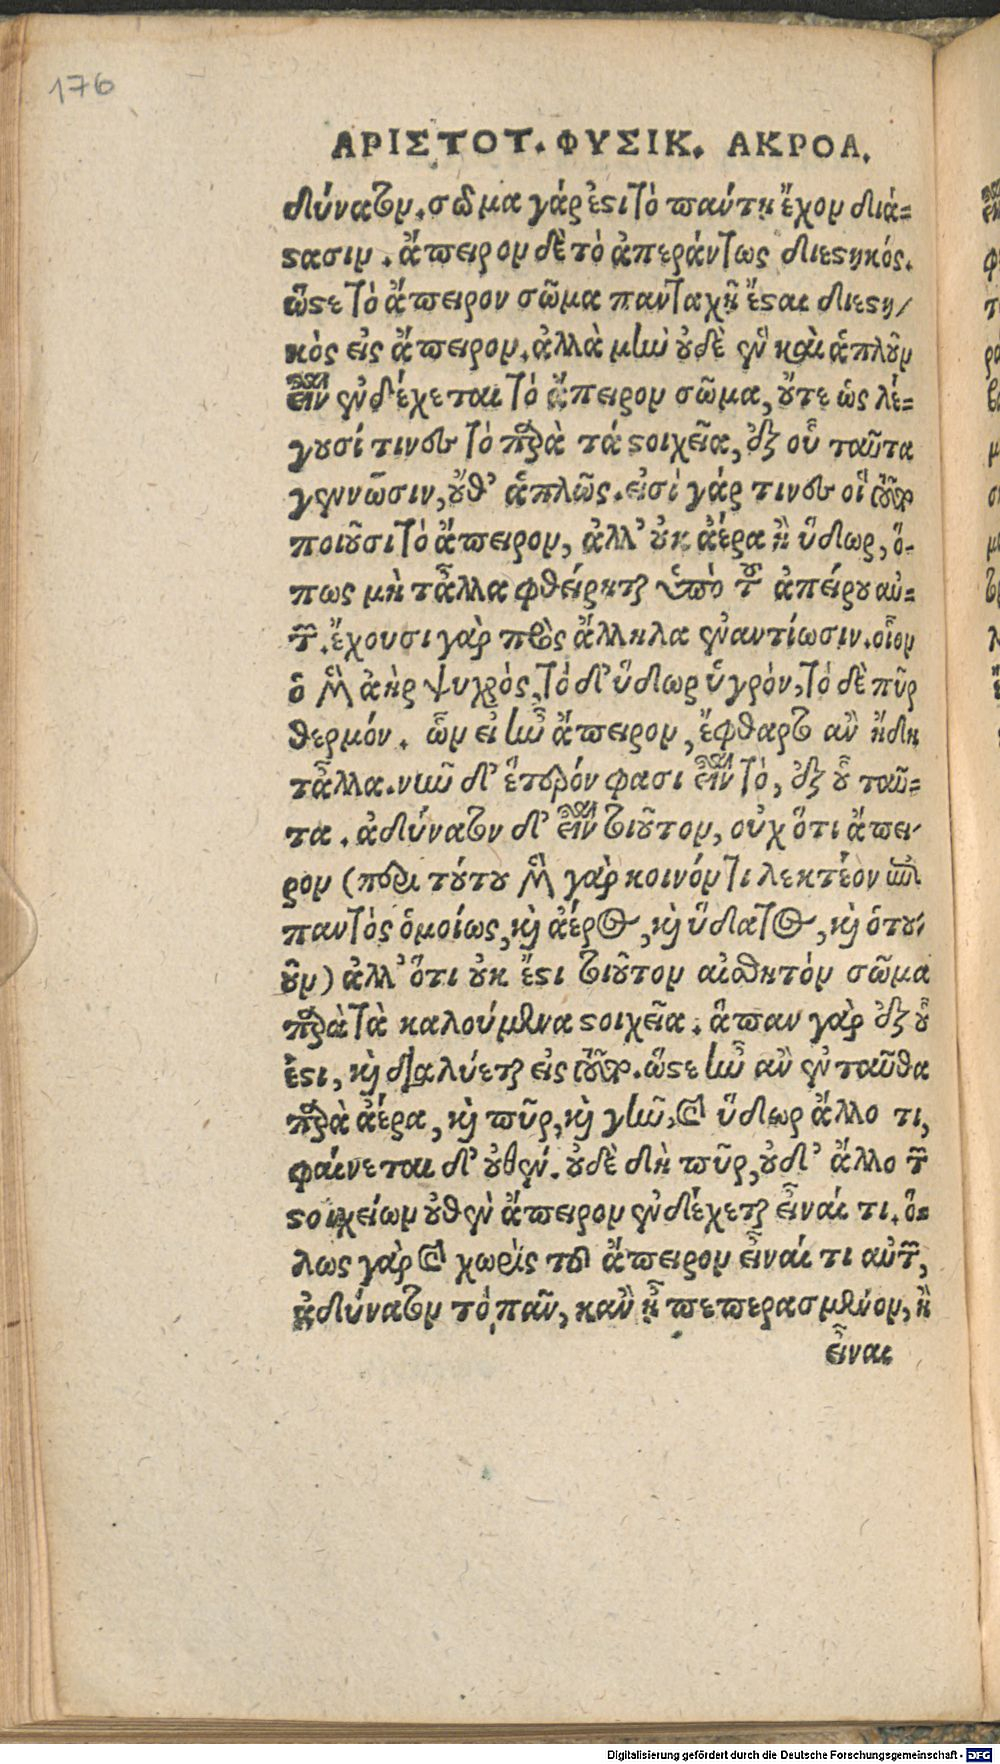 176
ΑΡΙΣΤΟΤ. ΦΥΣΙΚ. ΑΚΡΟΑ.
δύνατον. σῶμα γάρ ἐστι τὸ πάντη ἔχον διά-
στασιν. ἄπειρον δὲ τὸ ἀπεράντως διεστηκός.
ὥστε τὸ ἄπειρον σῶμα πανταχῆ ἔσται διεστη-
κὸς εἰς ἄπειρον. ἀλλὰ μὴν οὐδὲ ἓν καὶ ἁπλοῦν
εἶναι ἐνδέχεται τὸ ἄπειρον σῶμα, οὔτε ὡς λέ-
γουσί τινες τὸ παρὰ τά στοιχεῖα, ἐξ οὗ ταῦτα
γεννῶσιν, οὔθ' ἁπλῶς. εἰσὶ γάρ τινες οἳ τοῦτο
ποιοῦσι τὸ ἄπειρον, ἀλλ' οὐκ ἀέρα ἢ ὕδωρ, ὅ-
πως μὴ τἆλλα φθείρηται ὑπὸ τοῦ ἀπείρου αὐ-
τῶν. ἔχουσι γὰρ πρὸς ἄλληλα ἐναντίωσιν. οἷον
ὁ μὲν ἀὴρ ψυχρὸς, τὸ δ' ὕδωρ ὑγρὸν, τὸ δὲ πῦρ
θερμόν. ὧν εἰ ἦν ἄπειρον, ἔφθαρτο ἂν ἤδη
τἆλλα. νῦν δ' ἕτερόν φασι εἶναι τὸ, ἐξ οὗ ταῦ-
τα. ἀδύνατον δ' εἶναι τοιοῦτον, οὐχ ὅτι ἄπει-
ρον (περὶ τούτου μὲν γὰρ κοινόν τι λεκτέον ἐπὶ
παντὸς ὁμοίως, καὶ ἀέρος, καὶ ὕδατος, καὶ ὁτου-
οῦν) ἀλλ' ὅτι οὐκ ἔστι τοιοῦτον αἰσθητὸν σῶμα
παρὰ τὰ καλούμενα στοιχεῖα. ἅπαν γὰρ ἐξ οὗ
ἐστι, καὶ διαλύεται εἰς τοῦτο. ὥστε ἦν ἂν ἐνταῦθα
παρὰ ἀέρα, καὶ πῦρ, καὶ γῆν, καὶ ὕδωρ ἄλλο τι,
φαίνεται δ' οὐθέν. οὐδὲ δὴ πῦρ, οὐδ' ἄλλο τῶν
στοιχείων οὐθὲν ἄπειρον ἐνδέχεται εἶναί τι. ὅ-
λως γὰρ καὶ χωρὶς τοῦ ἄπειρον εἶναί τι αὐτῶν,
ἀδύνατον τὸ πᾶν, κἂν ᾖ πεπερασμένον, ἢ
εἶναι
Digitalisierung gefördert durch die Deutsche Forschungsgemeinschaft - DFG